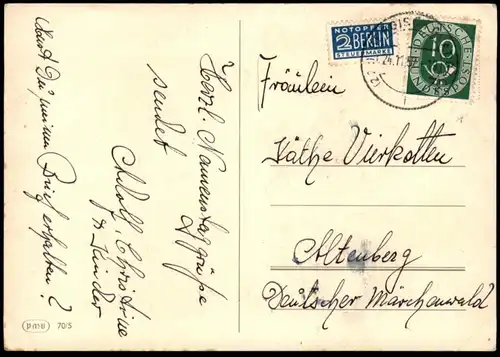 Herzl. Namenstagsgrüße
sendet
Adolf, Christine
n Kinder
Hast Du meinen Brief erhalten?
pmb 70/5
NOTOPFER
2 BERLIN
STEUERMARKE
24.11.52
DEUTSCHE
10
BUNDESPOST
Fräulein
Käthe Vierkotten
Altenberg
Deutscher Märchenwald